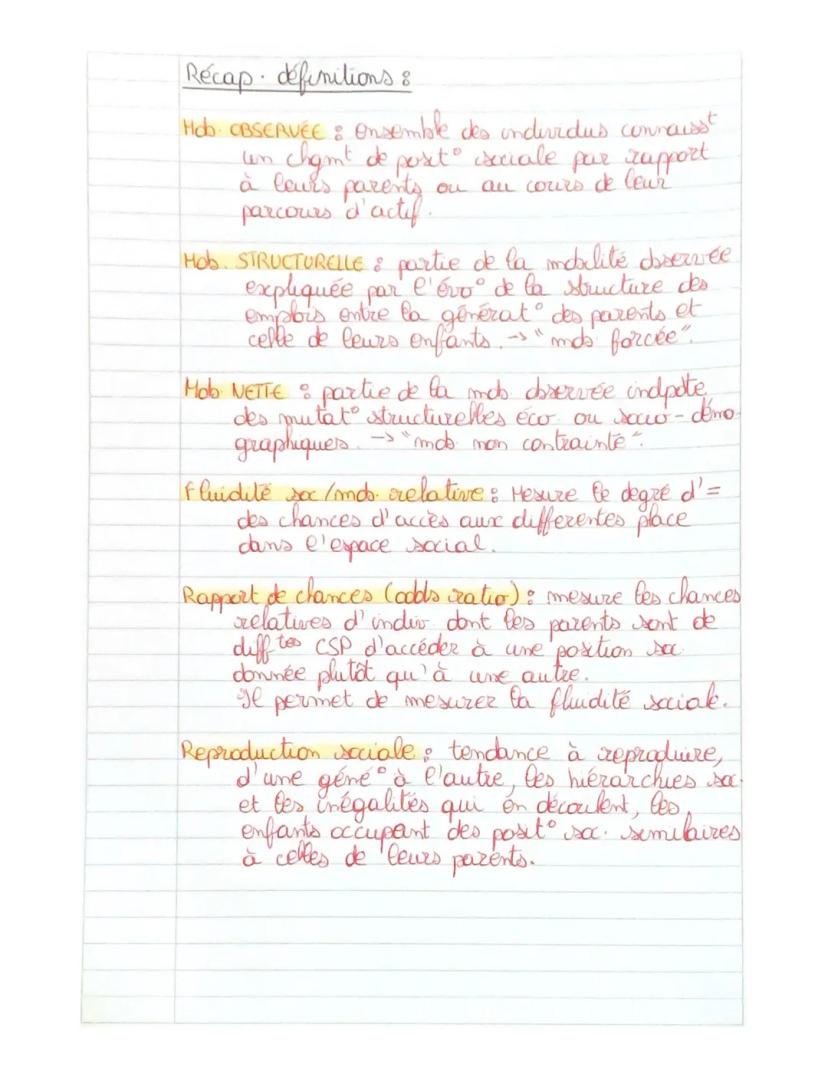 Récap. définitions :
Mob. OBSERVÉE : ensemble des individus connaisst
un chgmt de posit° sociale par rapport
à leurs parents ou au cours de leur
parcours d'actif.
Mob. STRUCTURELLE : partie de la mobilité observée
expliquée par l'évo° de la structure des
emplois entre la générat° des parents et
celle de leurs enfants. -> "mob forcée".
Mob NETTE : partie de la mob observée indpdte
des mutat° structurelles éco ou socio-démo-
graphiques. -> "mob non contrainte".
Fluidité soc/mob. relative : Mesure le degré d'=
des chances d'accès aux differentes place
dans l'espace social.
Rapport de chances (odds ratio) : mesure les chances
relatives d'indiv dont les parents sont de
difftes CSP d'accéder à une position soc
donnée plutôt qu'à une autre.
Il permet de mesurer la fluidité sociale.
Reproduction sociale : tendance à reproduire,
d'une géné° à l'autre, les hiérarchies soc.
et les inégalités qui en découlent, les
enfants occupant des posit° soc. similaires
à celles de leurs parents.